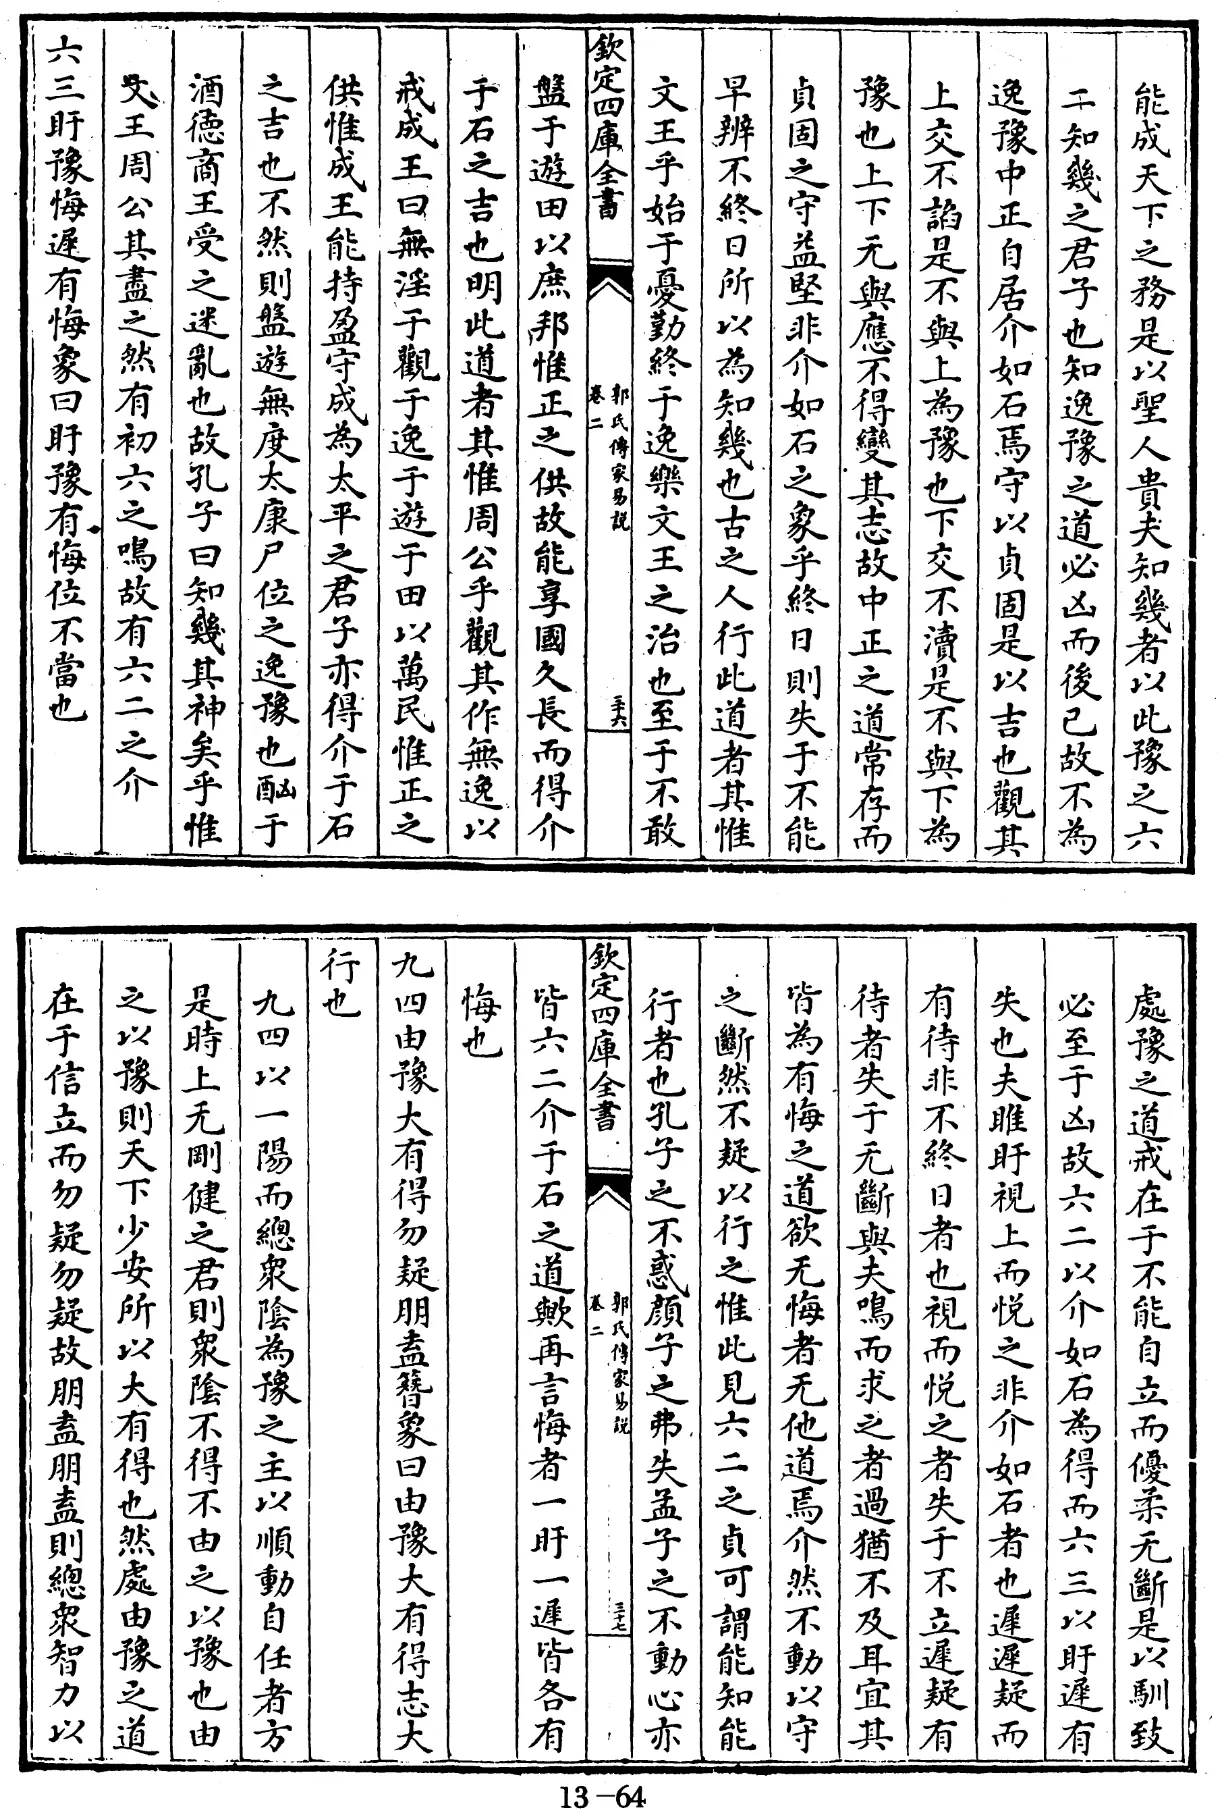 能成天下之務是以聖人貴夫知幾者以此豫之六
二知幾之君子也知逸豫之道必凶而後已故不為
逸豫中正自居介如石焉守以貞固是以吉也觀其
上交不諂是不與上為豫也下交不瀆是不與下為
豫也上下无與應不得變其志故中正之道常存而
貞固之守益堅非介如石之象乎終日則失于不能
早辨不終日所以為知幾也古之人行此道者其惟
文王乎始于憂勤終于逸樂文王之治也至于不敢
欽定四庫全書
郭氏傳家易說
卷二
三十六
盤于遊田以庶邦惟正之供故能享國久長而得介
于石之吉也明此道者其惟周公乎觀其作無逸以
戒成王曰無淫于觀于逸于遊于田以萬民惟正之
供惟成王能持盈守成為太平之君子亦得介于石
之吉也不然則盤遊無度太康尸位之逸豫也酗于
酒德商王受之迷亂也故孔子曰知幾其神矣乎惟
文王周公其盡之然有初六之鳴故有六二之介
六三盱豫悔遲有悔象曰盱豫有悔位不當也
處豫之道戒在于不能自立而優柔无斷是以馴致
必至于凶故六二以介如石為得而六三以盱遲有
失也夫睢盱視上而悅之非介如石者也遲遲疑而
有待非不終日者也視而悅之者失于不立遲疑有
待者失于无斷與夫鳴而求之者過猶不及耳宜其
皆為有悔之道欲无悔者无他道焉介然不動以守
之斷然不疑以行之惟此見六二之貞可謂能知能
行者也孔子之不惑顏子之弗失孟子之不動心亦
欽定四庫全書
郭氏傳家易說
卷二
三十七
皆六二介于石之道歟再言悔者一盱一遲皆各有
悔也
九四由豫大有得勿疑朋盍簪象曰由豫大有得志大
行也
九四以一陽而總衆陰為豫之主以順動自任者方
是時上无剛健之君則衆陰不得不由之以豫也由
之以豫則天下少安所以大有得也然處由豫之道
在于信立而勿疑勿疑故朋盍朋盍則總衆智力以
13-64